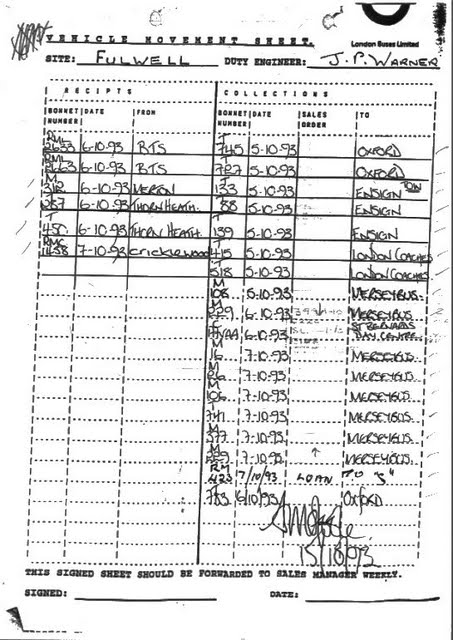 VEHICLE MOVEMENT SHEET.
London Buses Limited
SITE: FULWELL DUTY ENGINEER: J.P. WARNER
RECEIPTS COLLECTIONS
BONNET NUMBER DATE FROM BONNET NUMBER DATE SALES ORDER TO
RML 2633 6-10-93 BTS T 745 5-10-93 OXFORD
RML 2663 6-10-93 BTS T 727 5-10-93 OXFORD
M 6-10-93 MERTON T 133 5-10-93 ENSIGN
T 287 6-10-93 THORN HEATH. 88 5-10-93 ENSIGN
T 450 6-10-93 THORN HEATH. T 139 5-10-93 ENSIGN
RMC 1458 7-10-93 CRICKLEWOOD T 415 5-10-93 LONDON COACHES
T 518 5-10-93 LONDON COACHES
M 108 5-10-93 MERSEYBUS.
M 6-10-93 MERSEYBUS
6-10-93 ST BERNARDS DAY CENTRE.
M 16 7-10-93 MERSEYBUS.
M 7-10-93 MERSEYBUS.
M 106 7-10-93 MERSEYBUS.
T 741 7-10-93 MERSEYBUS.
M 377 7-10-93 MERSEYBUS.
M 7-10-93 MERSEYBUS.
RM 7/10/93 LOAN TO "S"
T 783 6/10/93 OXFORD
15/10/93
THIS SIGNED SHEET SHOULD BE FORWARDED TO SALES MANAGER WEEKLY.
SIGNED: DATE: